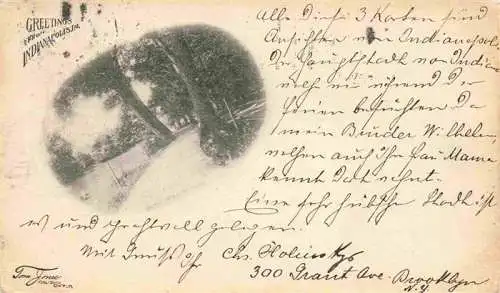 GREETINGS
FROM
INDIANAPOLIS, IND.
Alle Diese 3 Karten sind
Ansichten von Indianapolis
Der Hauptstadt von Indi
welche wir während der
Ferien besuchten Da
mein Bruder Wilhelm,
welchen auch Ihre Frau Mama
kennt Dort wohnt.
Eine sehr hübsche Stadt ist
es und prachtvoll gelegen.
Mit Gruß Ihr Chs.
300 Grant Ave. Brooklyn
N.Y.